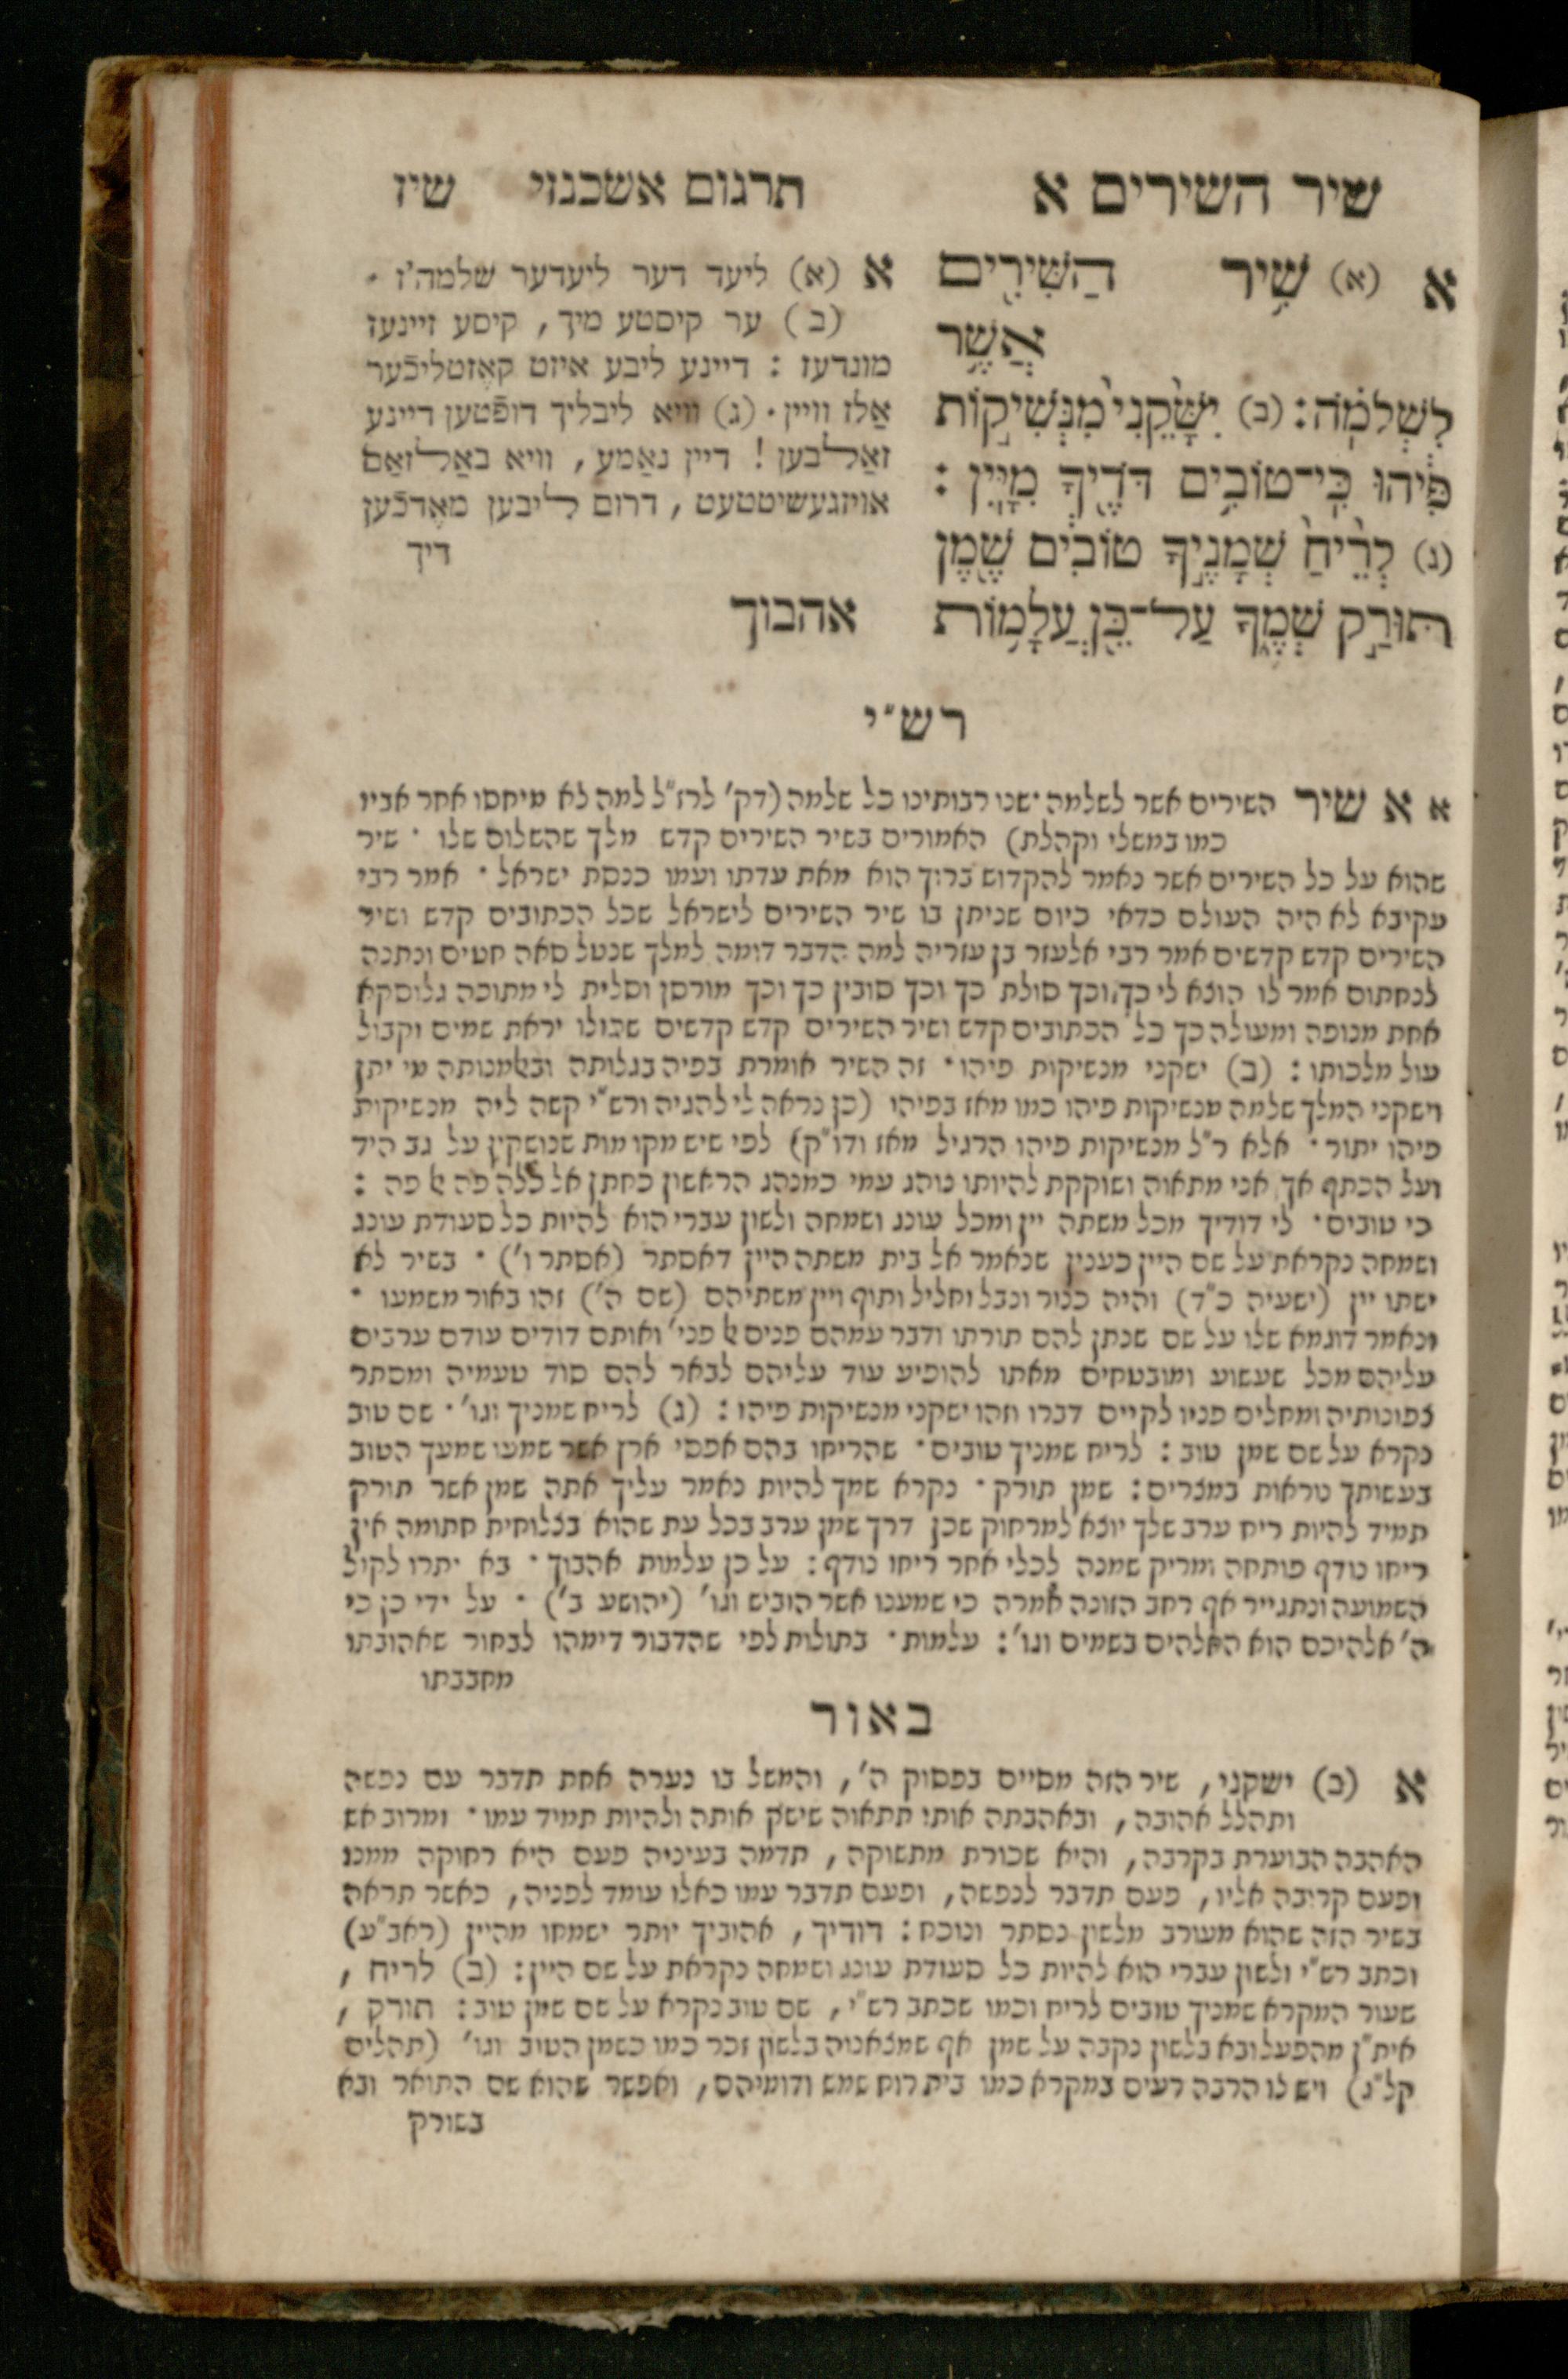 שיר השירים א
תרגום אשכנזי שיז
א (א) שִׁ֥יר הַשִּׁירִ֖ים
אֲשֶׁ֥ר
לִשְׁלֹמֹֽה: (ב) יִשָּׁקֵ֙נִי֙ מִנְּשִׁיק֣וֹת
פִּ֔יהוּ כִּֽי־טוֹבִ֥ים דֹּדֶ֖יךָ מִיָּֽיִן:
(ג) לְרֵ֙יחַ֙ שְׁמָנֶ֣יךָ טוֹבִ֔ים שֶׁ֖מֶן
תּוּרַ֣ק שְׁמֶ֑ךָ עַל־כֵּ֖ן עֲלָמ֥וֹת
אהבוך
א (א) ליעד דער ליעדער שלמה'ז ·
(ב) ער קיסטע מיך, קיסע זיינעז
מונדעז : דיינע ליבע איזט קאֶזטליכֿער
אַלז וויין · (ג) וויא ליבליך דופֿטען דיינע
זאַלבען ! דיין נאַמע, וויא באַלזאַם
אויזגעשיטטעט, דרום ליבען מאֶדכֿען
דיך
רש"י
א א שיר השירים אשר לשלמה · שנו רבותינו כל שלמה (דק' לרז"ל למה לא מיחסו אחר אביו
כמו במשלי וקהלת) האמורים בשיר השירים קדש מלך שהשלום שלו · שיר
שהוא על כל השירים אשר נאמר להקדוש ברוך הוא מאת עדתו ועמו כנסת ישראל · אמר רבי
עקיבא לא היה העולם כדאי כיום שניתן בו שיר השירים לישראל שכל הכתובים קדש ושיר
השירים קדש קדשים אמר רבי אלעזר בן עזריה למה הדבר דומה למלך שנטל סאה חטים ונתנה
לנחתום אמר לו הוצא לי כך וכך סולת כך וכך סובין כך וכך מורסן וסלית לי מתוכה גלוסקא
אחת מנופה ומעולה כך כל הכתובים קדש ושיר השירים קדש קדשים שכולו יראת שמים וקבול
עול מלכותו : (ב) ישקני מנשיקות פיהו · זה השיר אומרת בפיה בגלותה ובאלמנותה מי יתן
וישקני המלך שלמה מנשיקות פיהו כמו מאז בפיהו (כן נראה לי להגיה ורש"י קשה ליה מנשיקות
פיהו יתור · אלא ר"ל מנשיקות פיהו הרגיל מאז ודו"ק) לפי שיש מקומות שנושקין על גב היד
ועל הכתף אך אני מתאוה ושוקקת להיותו נוהג עמי כמנהג הראשון כחתן אל כלה פה אל פה :
כי טובים · לי דודיך מכל משתה יין ומכל עונג ושמחה ולשון עברי הוא להיות כל סעודת עונג
ושמחה נקראת על שם היין כענין שנאמר אל בית משתה היין דאסתר (אסתר ו') · בשיר לא
ישתו יין (ישעיה כ"ד) והיה כנור ונבל וחליל ותוף ויין משתיהם (שם ה') זהו באור משמעו ·
ונאמר דוגמא שלו על שם שנתן להם תורתו ודבר עמהם פנים אל פני' ואותם דודים עודם ערבים
עליהם מכל שעשוע ומובטחים מאתו להופיע עוד עליהם לבאר להם סוד טעמיה ומסתר
צפונותיה ומחלים פניו לקיים דברו וזהו ישקני מנשיקות פיהו : (ג) לריח שמניך וגו' · שם טוב
נקרא על שם שמן טוב : לריח שמניך טובים · שהריחו בהם אפסי ארץ אשר שמעו שמעך הטוב
בעשותך נוראות במצרים : שמן תורק · נקרא שמך להיות נאמר עליך אתה שמן אשר תורק
תמיד להיות ריח ערב שלך יוצא למרחוק שכן דרך שמן ערב בכל עת שהוא בצלוחית חתומה אין
ריחו נודף פותחה ומריק שמנה לכלי אחר ריחו נודף : על כן עלמות אהבוך · בא יתרו לקול
השמועה ונתגייר אף רחב הזונה אמרה כי שמענו אשר הוביש וגו' (יהושע ב') · על ידי כן כי
ה' אלהיכם הוא האלהים בשמים וגו' : עלמות · בתולות לפי שהדבור דימהו לבחור שאהובתו
מחבבתו
באור
א (ב) ישקני, שיר הזה מסיים בפסוק ה', והמשל בו נערה אחת תדבר עם נפשה
ותהלל אהובה, ובאהבתה אותו תתאוה שישק אותה ולהיות תמיד עמו · ומרוב אש
האהבה הבוערת בקרבה, והיא שכורת מתשוקה, תדמה בעיניה פעם היא רחוקה ממנו
ופעם קריבה אליו, פעם תדבר לנפשה, ופעם תדבר עמו כאלו עומד לפניה, כאשר תראה
בשיר הזה שהוא מעורב מלשון נסתר ונוכח : דודיך, אהוביך יותר ישמחו מהיין (ראב"ע)
וכתב רש"י ולשון עברי הוא להיות כל סעודת עונג ושמחה נקראת על שם היין : (ב) לריח,
שעור המקרא שמניך טובים לריח וכמו שכתב רש"י, שם טוב נקרא על שם שמן טוב : תורק,
אית"ן מהפעל ובא בלשון נקבה על שמן אף שמצאנוה בלשון זכר כמו כשמן הטוב וגו' (תהלים
קל"ג) ויש לו הרבה רעים במקרא כמו בית רוח שמש ודומיהם, ואפשר שהוא שם התואר ובא
בשורק